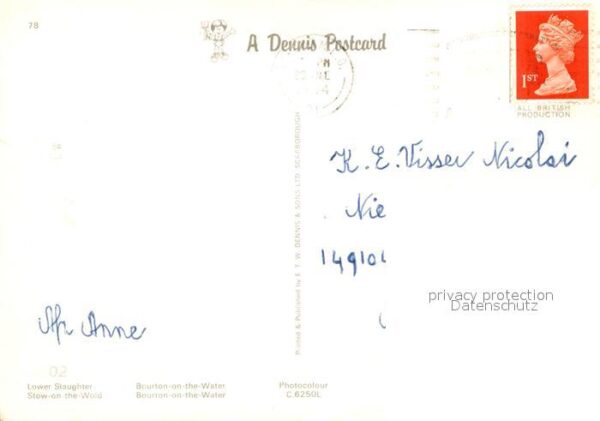 78
A Dennis Postcard
1ST
ALL BRITISH
PRODUCTION
K. E. Visser Nicolai
Nie
14910
privacy protection
Datenschutz
Anne
02
Lower Slaughter Bourton-on-the-Water Photocolour
Stow-on-the-Wold Bourton-on-the-Water C.6250L
Printed & Published by E. T. W. DENNIS & SONS LTD. SCARBOROUGH